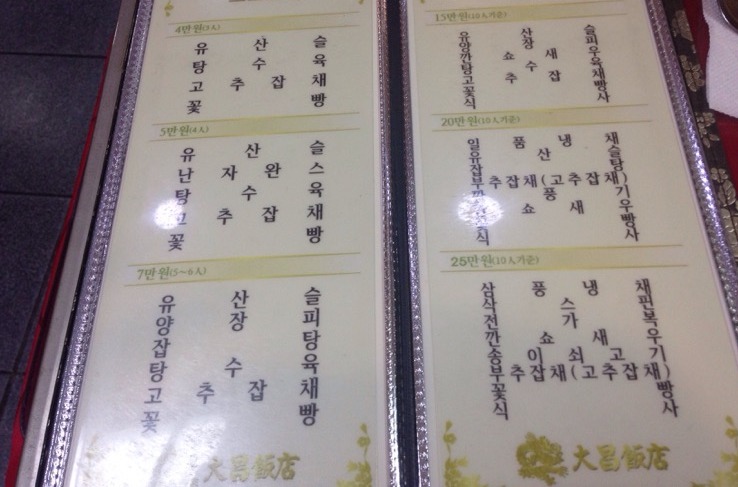 4만원(3人)
유산슬
탕수육
고추잡채
꽃빵
5만원(4人)
유산슬
난자완스
탕수육
고추잡채
꽃빵
7만원(5~6人)
유산슬
양장피
잡탕
탕수육
고추잡채
꽃빵
大昌飯店
15만원(10人기준)
유산슬
양장피
깐쇼새우
탕수육
고추잡채
꽃빵
식사
20만원(10人기준)
일품냉채
유산슬
잡탕
부추잡채(고추잡채)
깐풍기
깐쇼새우
꽃빵
식사
25만원(10人기준)
삼풍냉채
삭스핀
전가복
깐쇼새우
송이쇠고기
부추잡채(고추잡채)
꽃빵
식사
大昌飯店